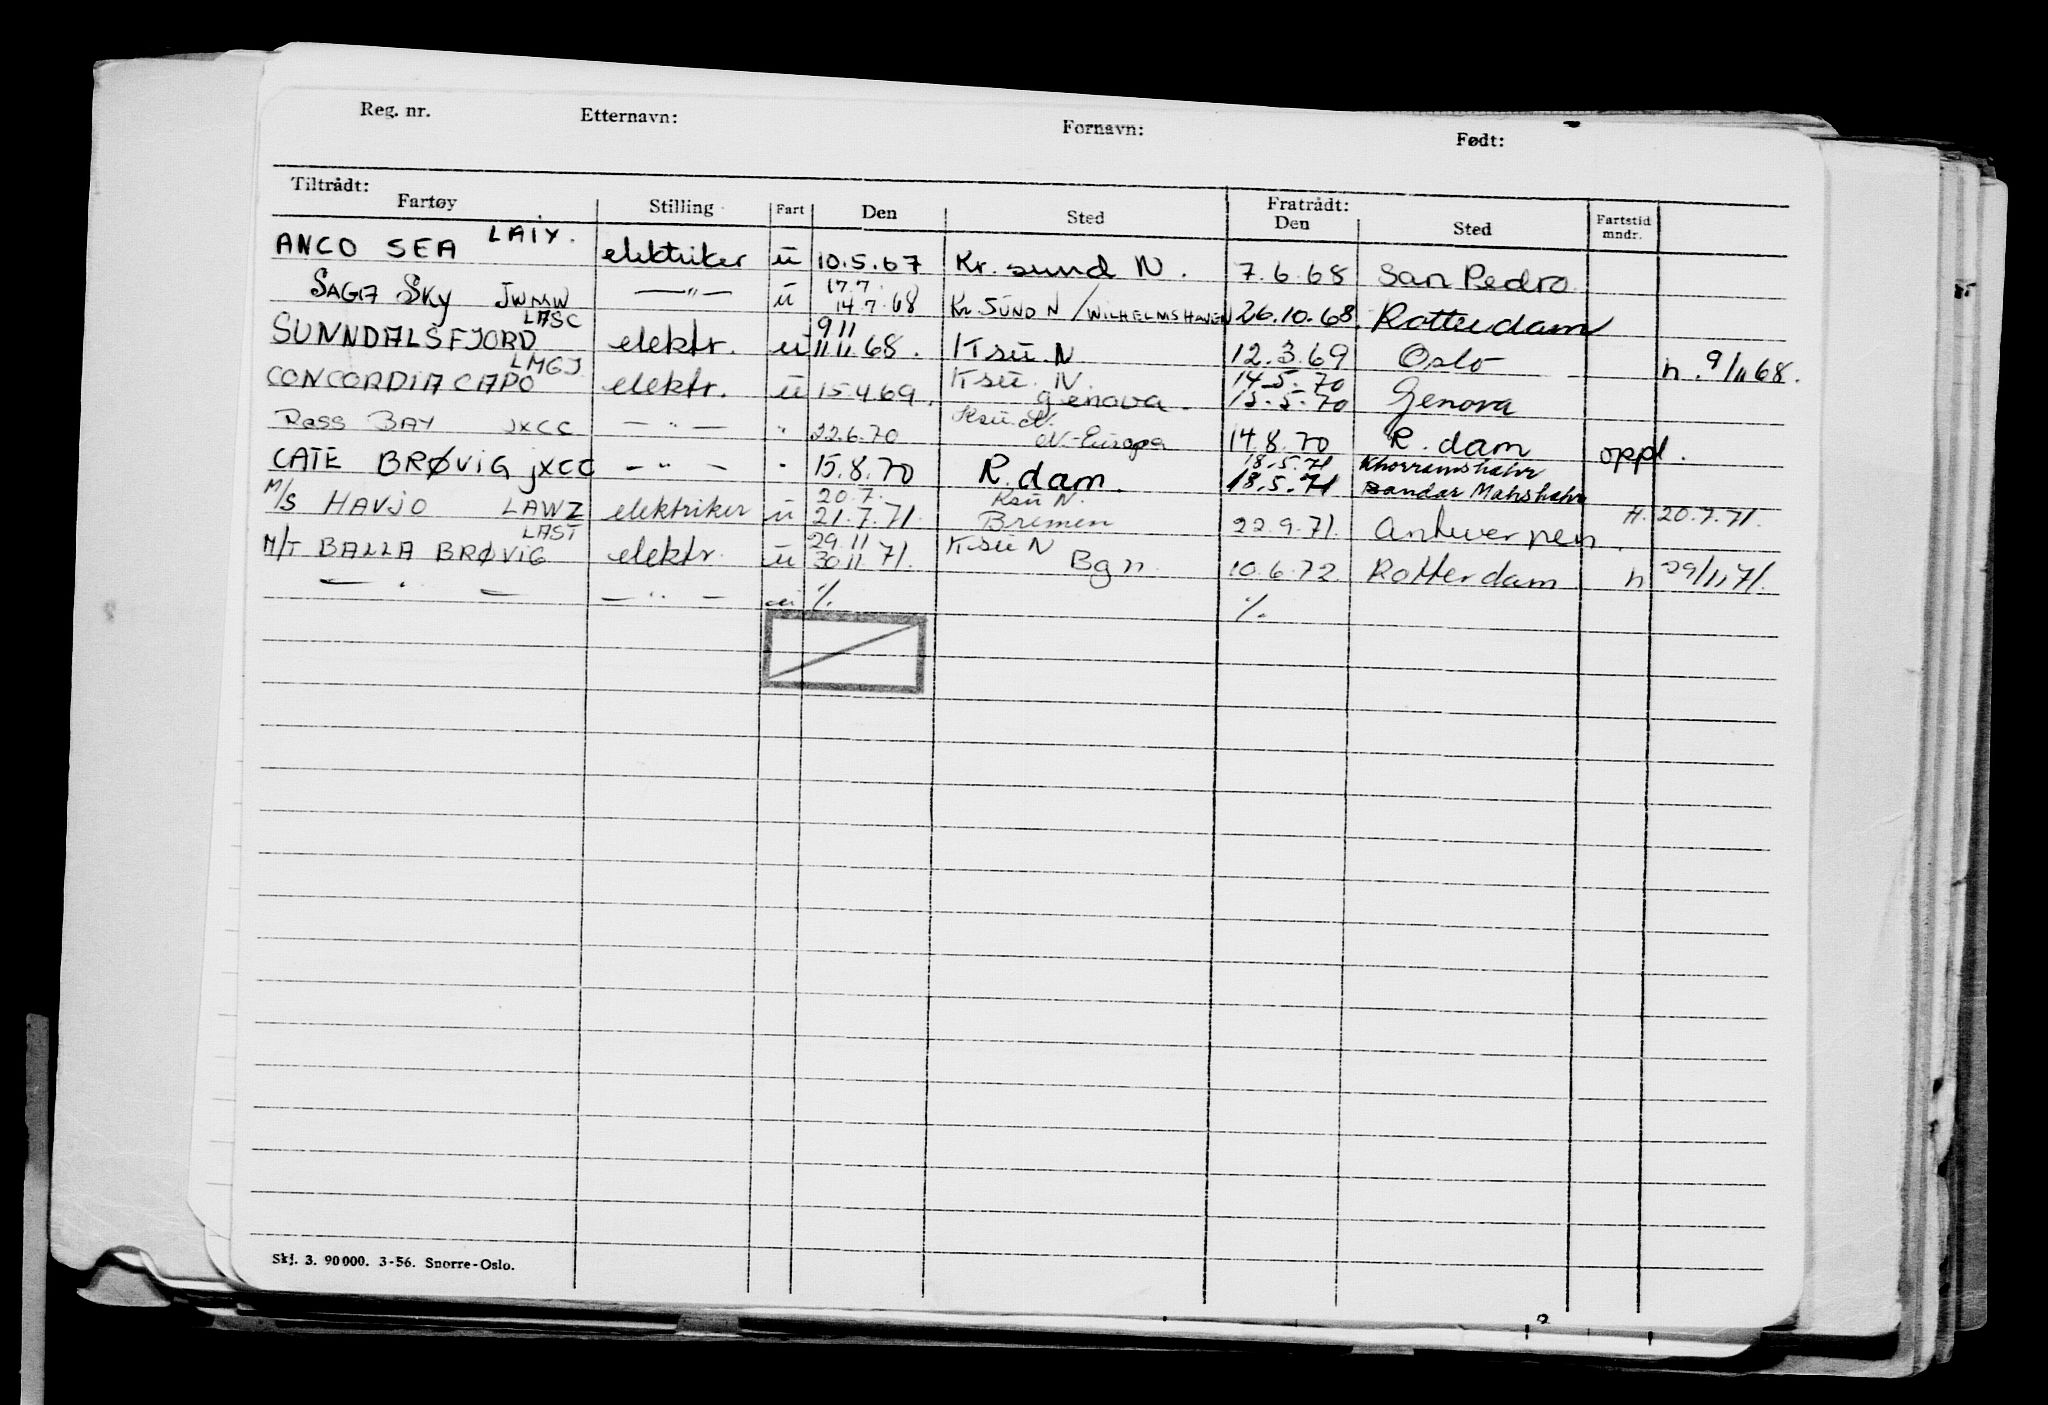 Reg. nr. Etternavn: Fornavn: Født:
Tiltrådt: Fratrådt:
Fartøy Stilling Fart Den Sted Den Sted Fartstid mndr.
ANCO SEA LAIY. elektriker ü 10.5.67 Kr. sund N. 7.6.68 San Pedro
17.7
SAGA SKY JWMW —"— ü 14.7.68 Kr. SUND N / WILHELMSHAVEN 26.10.68. Rotterdam
LASC 9 11
SUNNDALSFJORD elektr. ü 11 11 68. Ksü. N 12.3.69 Oslo n. 9/11 68.
LMGJ Ksü. N. 14.5.70
CONCORDIA CAPO elektr. ü 15.4.69. genova. 15.5.70 Genova
Ksü. N.
Ross BAY JXCC —"— " 22.6.70 N-Europa 14.8.70 R. dam oppl.
18.5.71 Khorramshahr
CATE BRØVIG JXCC —"— " 15.8.70 R. dam. 18.5.71 Bandar Mahshahr
20.7. Ksü N.
M/S HAVJO LAWZ elektriker ü 21.7.71. Bremen 22.9.71. Antwerpen. H. 20.7.71.
LAST 29 11 Ksü N
M/T BALLA BRØVIG elektr. ü 30 11 71. Bgn. 10.6.72 Rotterdam n 29/11 71.
— " — —"— ü % %
Skj. 3. 90 000. 3-56. Snorre-Oslo.
2